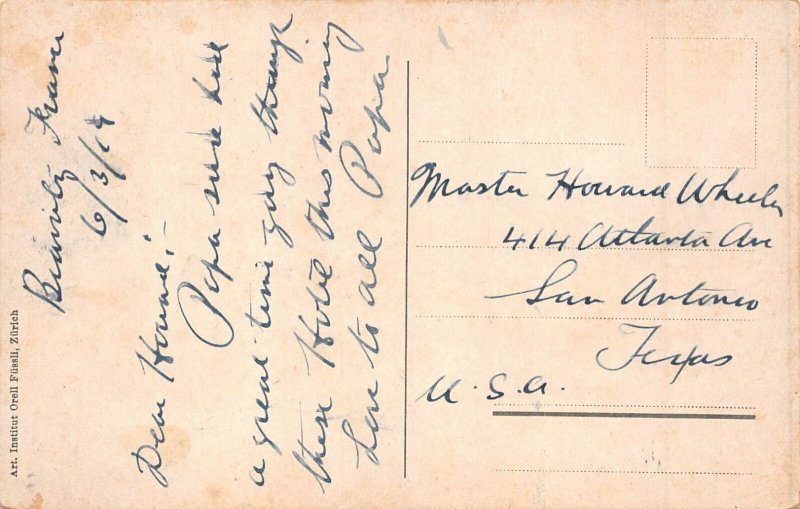 France
6/3/19
Dear Howard:-
Papa sure had
a great time going through
these Hotel this morning
Love to all Papa
Master Howard Wheeler
414 Atlanta Ave
San Antonio
Texas
U.S.A.
Art. Institut Orell Füssli, Zürich